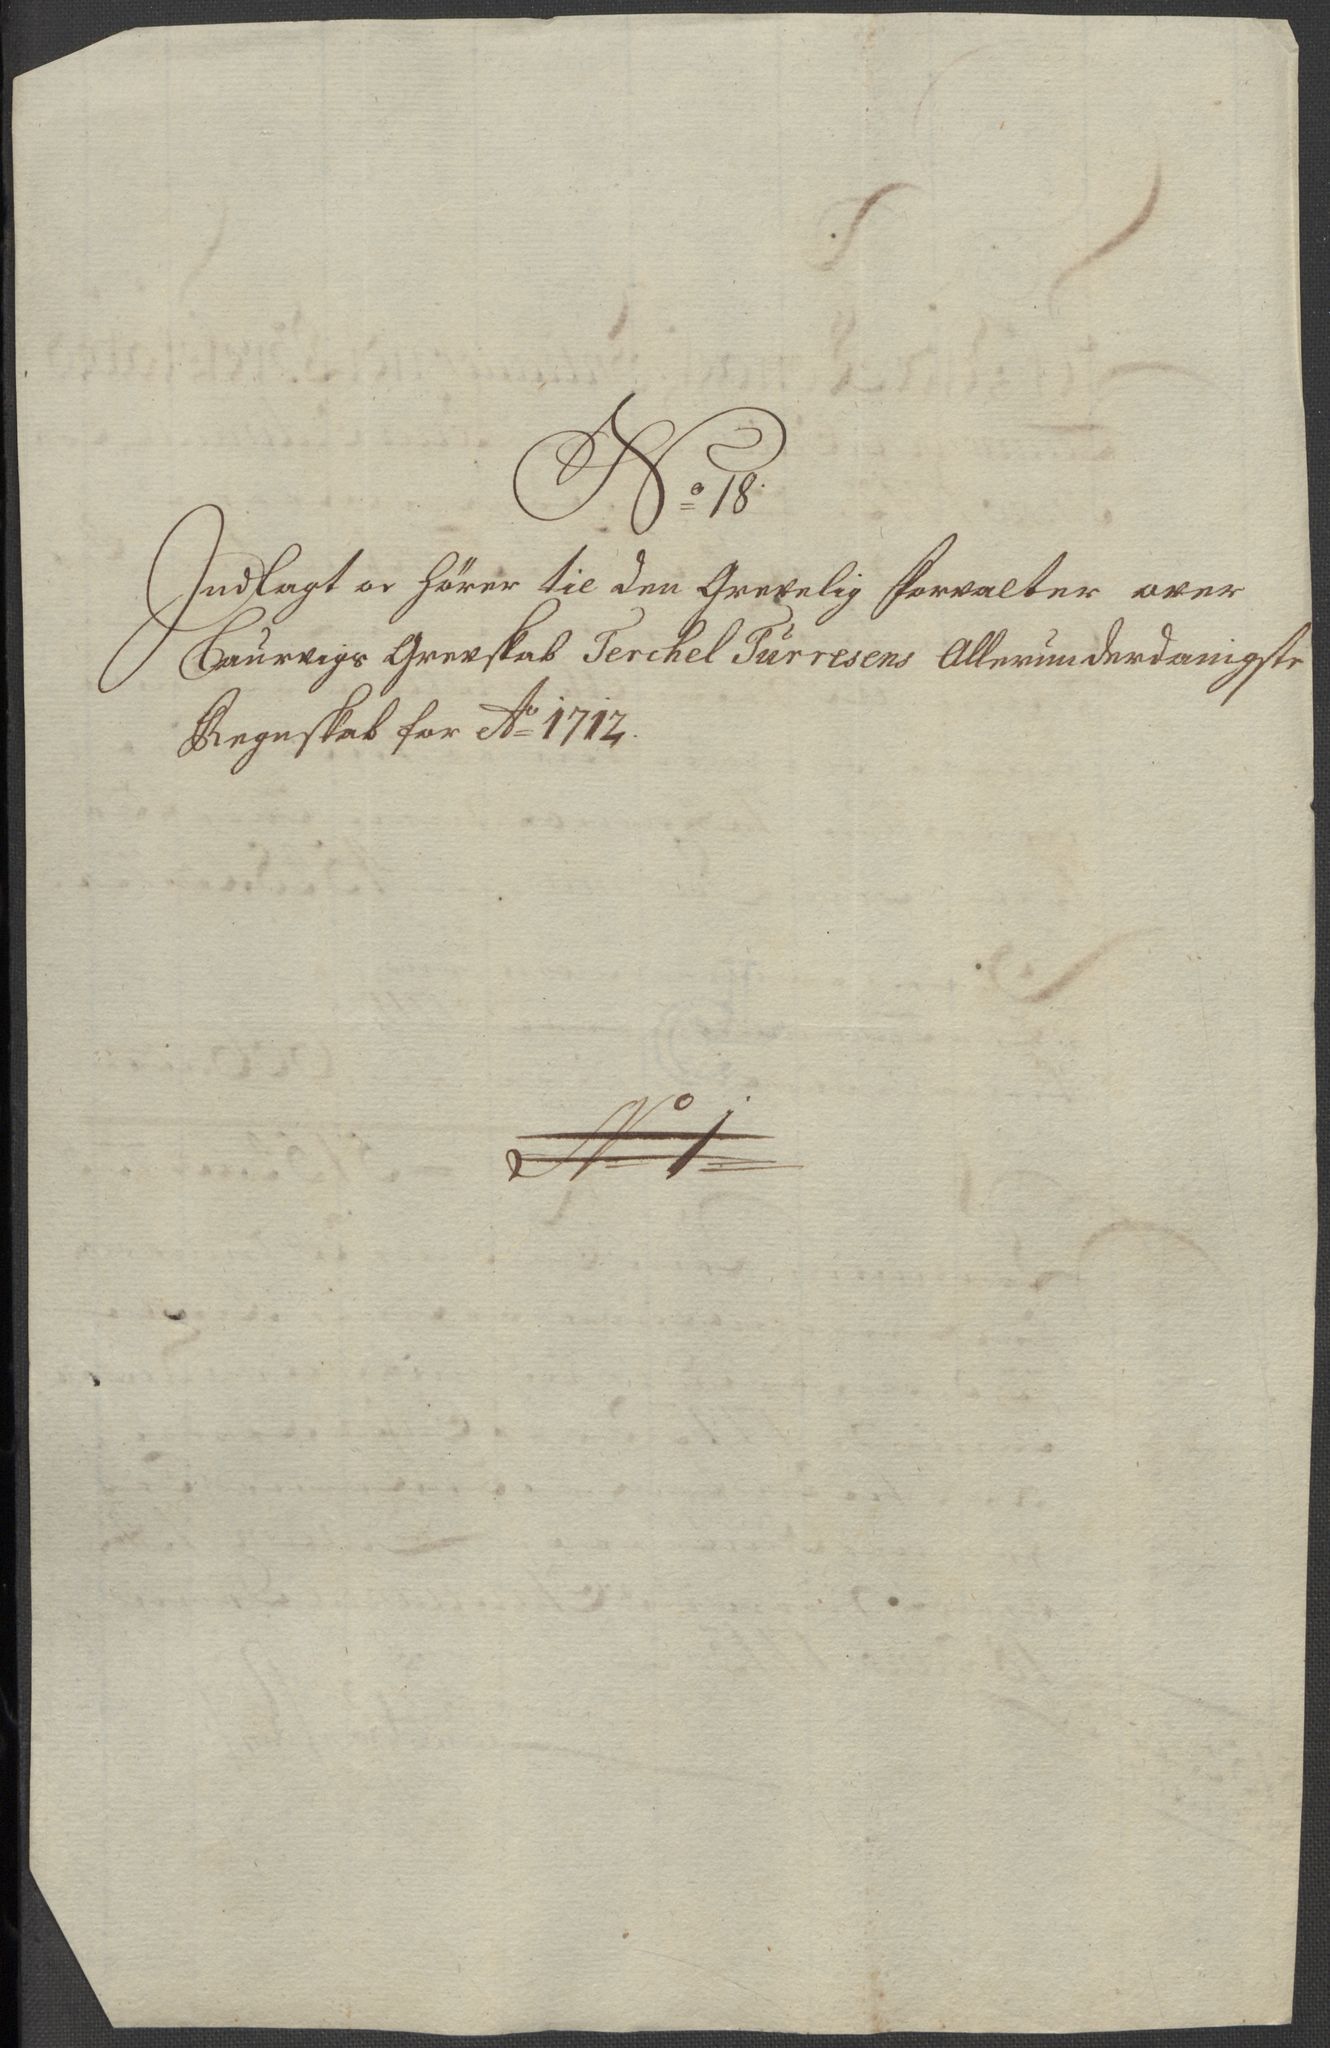 No 18.
Indlagt oc hörer til den Grevelig Forvalter over
Laurvigs Grevskab Terchel Türresens Allerunderdanigste
Regnskab for Ao 1712.
No 1